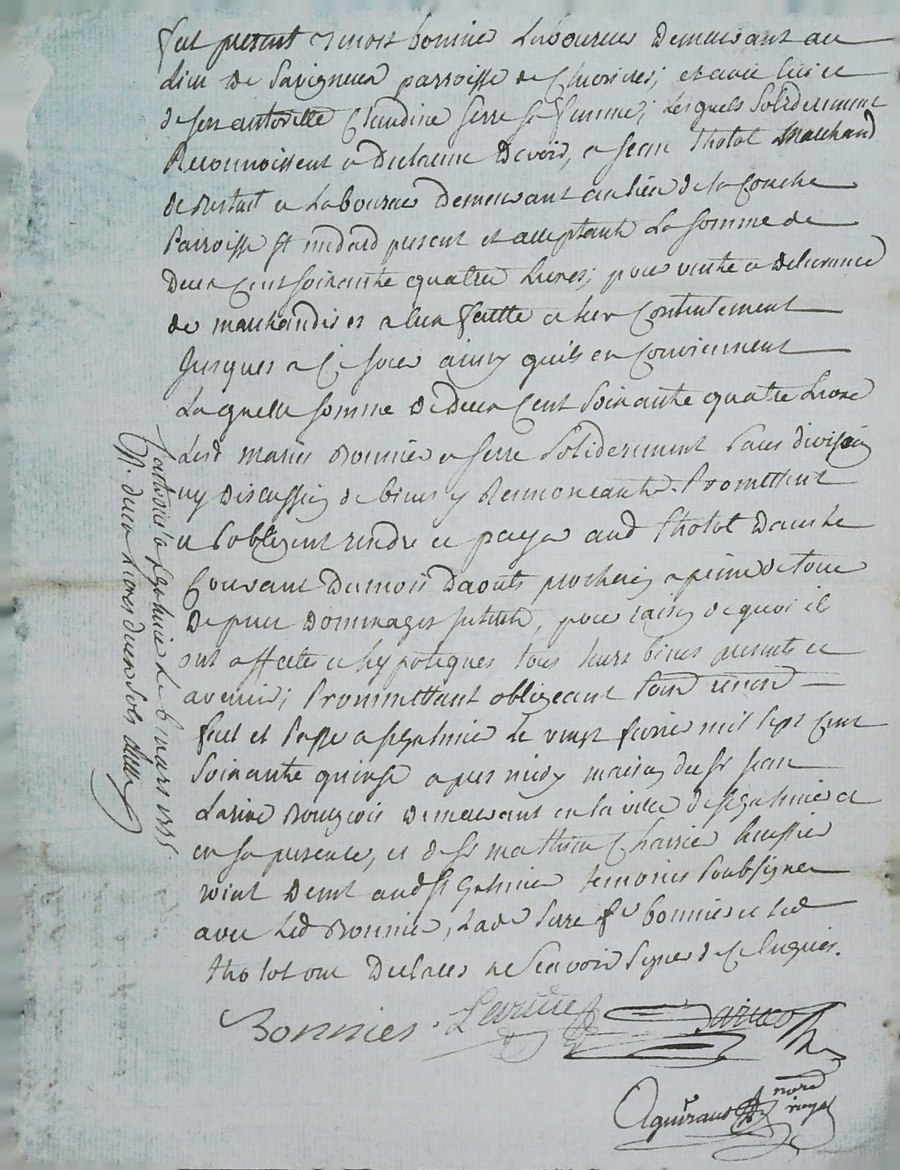 fut present Bonnier Laboureur Demeurant au
Lieu De Savigneux parroisse de ; et avec licence
de son authorité Claudine Serre sa femme; Lesquels Soliderement
Reconnoissent et Declarent Devoir, a Jean Tholot Marchand
et Laboureur Demeurant au lieu de la Couche
Parroisse St médard present et acceptant La somme de
Deux Cent soixante quatre Livres; pour vente et Delivrance
de marchandises a eux faitte a leur Contentement
Jusques a Ce jour ainsy quils en Conviennent
Laquelle somme De Deux Cent Soixante quatre Livres
Lesd mariés Bonnier et Serre Soliderement Sans division
ny discussion de biens y Renonceants. Promettent
et Sobligent rendre et payer aud Tholot Dans le
Courant Du mois D'aoust prochain a peine de tous
Depens Dommages Interets, pour raison de quoi ils
ont affecté et hypotequés tous leurs biens presents et
avenir; Promettant obligeant renon
fait et Passé a St Galmier Le vingt fevrier mil sept Cent
Soixante quinze apres midy maison du Sr Jean
Larive Bourgeois Demeurant en la ville de St Galmier et
en sa presence, et de Sr mathieu huissier
Demt aud St Galmier temoins Soubsignes
avec Led Bonnier, Lad Serre fe bonnier et Led
Tholot ont Declaré ne Scavoir Signer de Ce Enquis.
Bonnier Larive
Aguiraud nore royal
a St Galmier Le 6 mars 1775.
R. deux Livres deux sols